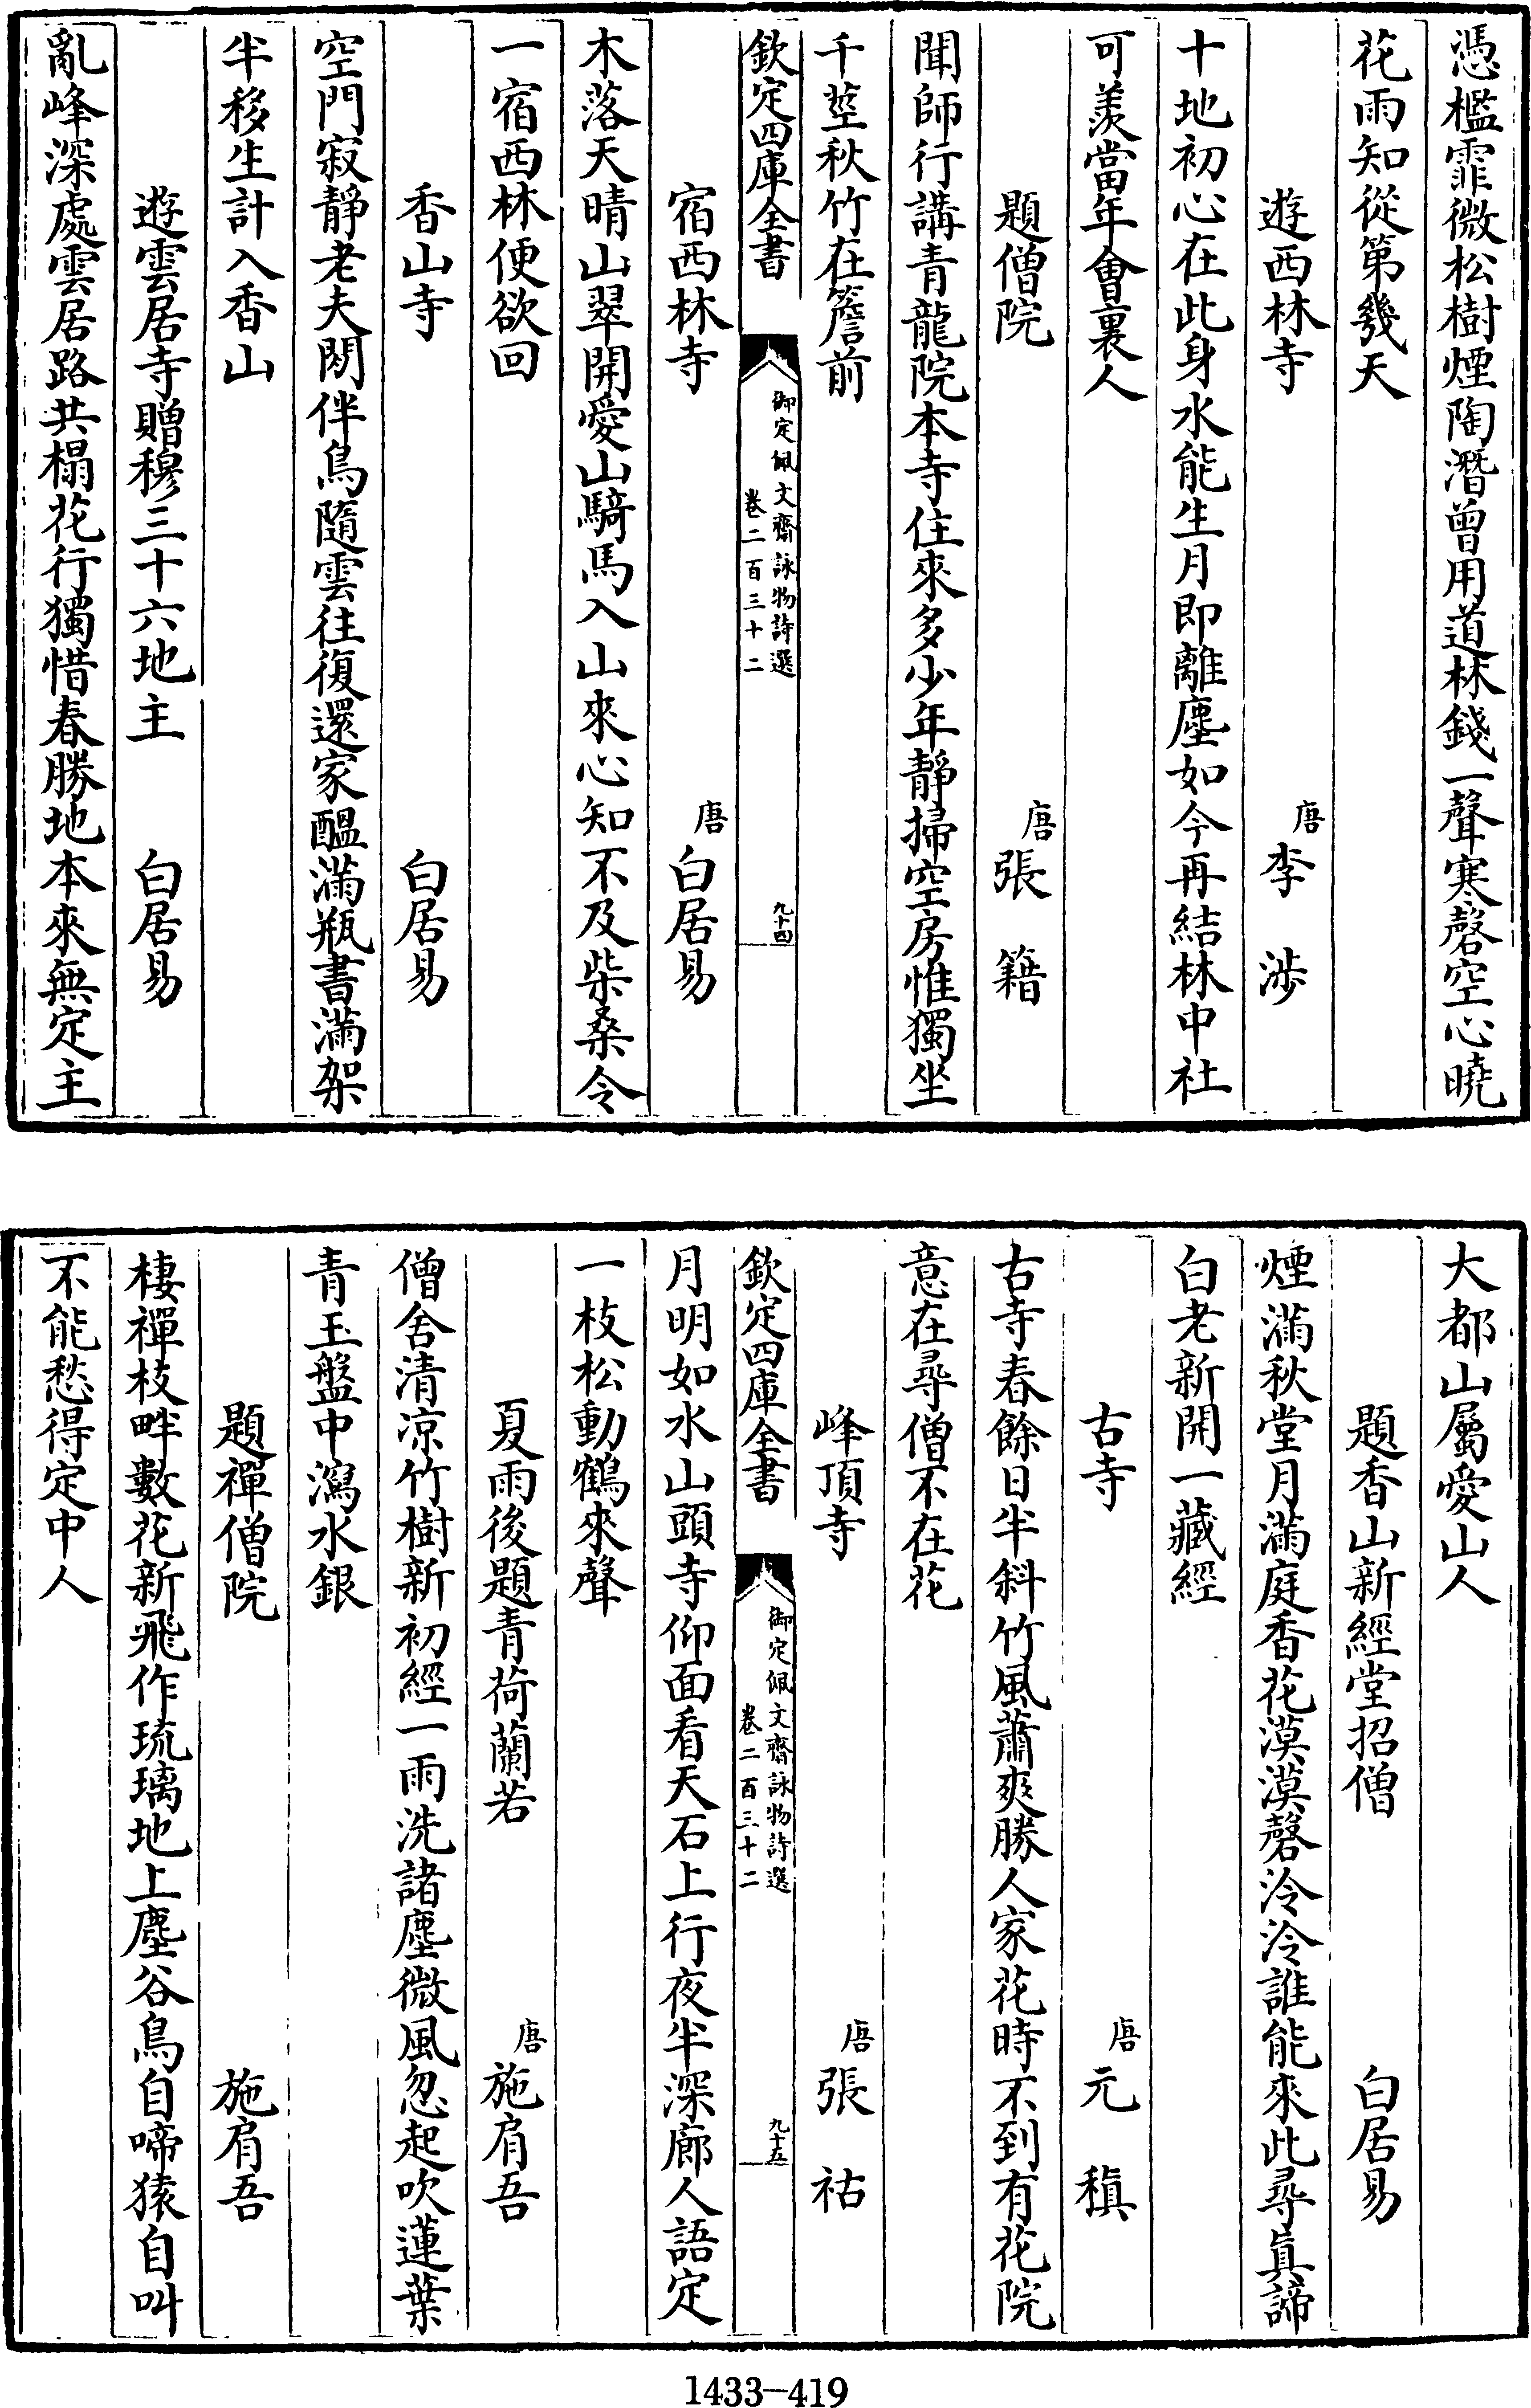 憑檻霏微松樹煙陶潛曾用道林錢一聲寒磬空心曉
花雨知從第幾天
遊西林寺 唐 李涉
十地初心在此身水能生月即離塵如今再結林中社
可羨當年會裏人
題僧院 唐 張籍
聞師行講青龍院本寺住來多少年靜掃空房惟獨坐
千莖秋竹在簷前
欽定四庫全書 御定佩文齋詠物詩選 卷二百三十二 九十四
宿西林寺 唐 白居易
木落天晴山翠開愛山騎馬入山來心知不及柴桑令
一宿西林便欲回
香山寺 白居易
空門寂靜老夫閒伴鳥隨雲往復還家醞滿瓶書滿架
半移生計入香山
遊雲居寺贈穆三十六地主 白居易
亂峰深處雲居路共榻花行獨惜春勝地本來無定主
大都山屬愛山人
題香山新經堂招僧 白居易
煙滿秋堂月滿庭香花漠漠磬泠泠誰能來此尋真諦
白老新開一藏經
古寺 唐 元稹
古寺春餘日半斜竹風蕭爽勝人家花時不到有花院
意在尋僧不在花
峰頂寺 唐 張祜
欽定四庫全書 御定佩文齋詠物詩選 卷二百三十二 九十五
月明如水山頭寺仰面看天石上行夜半深廊人語定
一枝松動鶴來聲
夏雨後題青荷蘭若 唐 施肩吾
僧舍清凉竹樹新初經一雨洗諸塵微風忽起吹蓮葉
青玉盤中瀉水銀
題禪僧院 施肩吾
棲禪枝畔數花新飛作琉璃地上塵谷鳥自啼猿自叫
不能愁得定中人
1433-419